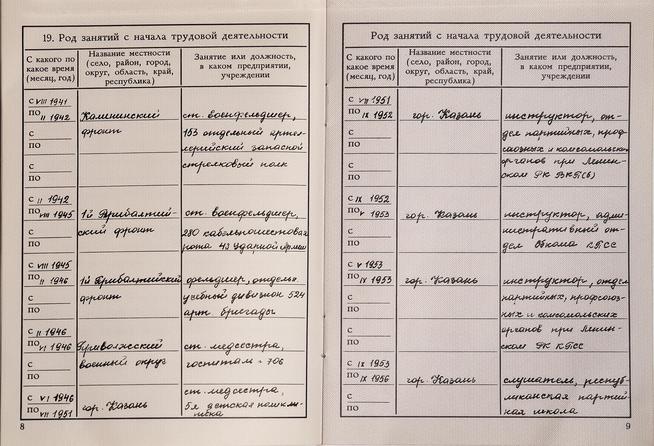 19. Род занятий с начала трудовой деятельности
С какого по какое время (месяц, год)
Название местности (село, район, город, округ, область, край, республика)
Занятие или должность, в каком предприятии, учреждении
с VIII 1941
по II 1942
Калининский
фронт
ст. военфельдшер,
153 отдельный артил-
лерийский запасной
стрелковый полк
с
по
с
по
с II 1942
по VIII 1945
1й Прибалтий-
ский фронт
ст. военфельдшер,
280 кабельношестовая
рота 4й Ударной Армии
с
по
с VIII 1945
по II 1946
1й Прибалтийский
фронт
фельдшер, отдельн.
учебный дивизион 524
арт. бригады
с
по
с II 1946
по VI 1946
Приволжский
военный округ
ст. медсестра,
госпиталь - 706
с
по
с VI 1946
по VII 1951
гор. Казань
ст. медсестра,
5я детская поликли-
ника
8
Род занятий с начала трудовой деятельности
С какого по какое время (месяц, год)
Название местности (село, район, город, округ, область, край, республика)
Занятие или должность, в каком предприятии, учреждении
с VII 1951
по IX 1952
гор. Казань
инструктор, от-
дел партийных, проф-
союзных и комсомольск.
органов при Ленин-
ском РК ВКП(б)
с
по
с
по
с IX 1952
по V 1953
гор. Казань
инструктор, адми-
нистративный от-
дел Обкома КПСС
с
по
с V 1953
по IX 1953
гор. Казань
инструктор, отдел
партийных, профсоюз-
ных и комсомольских
органов при Ленин-
ском РК КПСС
с
по
с
по
с IX 1953
по IX 1956
гор. Казань
слушатель, респуб-
ликанская партий-
ная школа
с
по
9